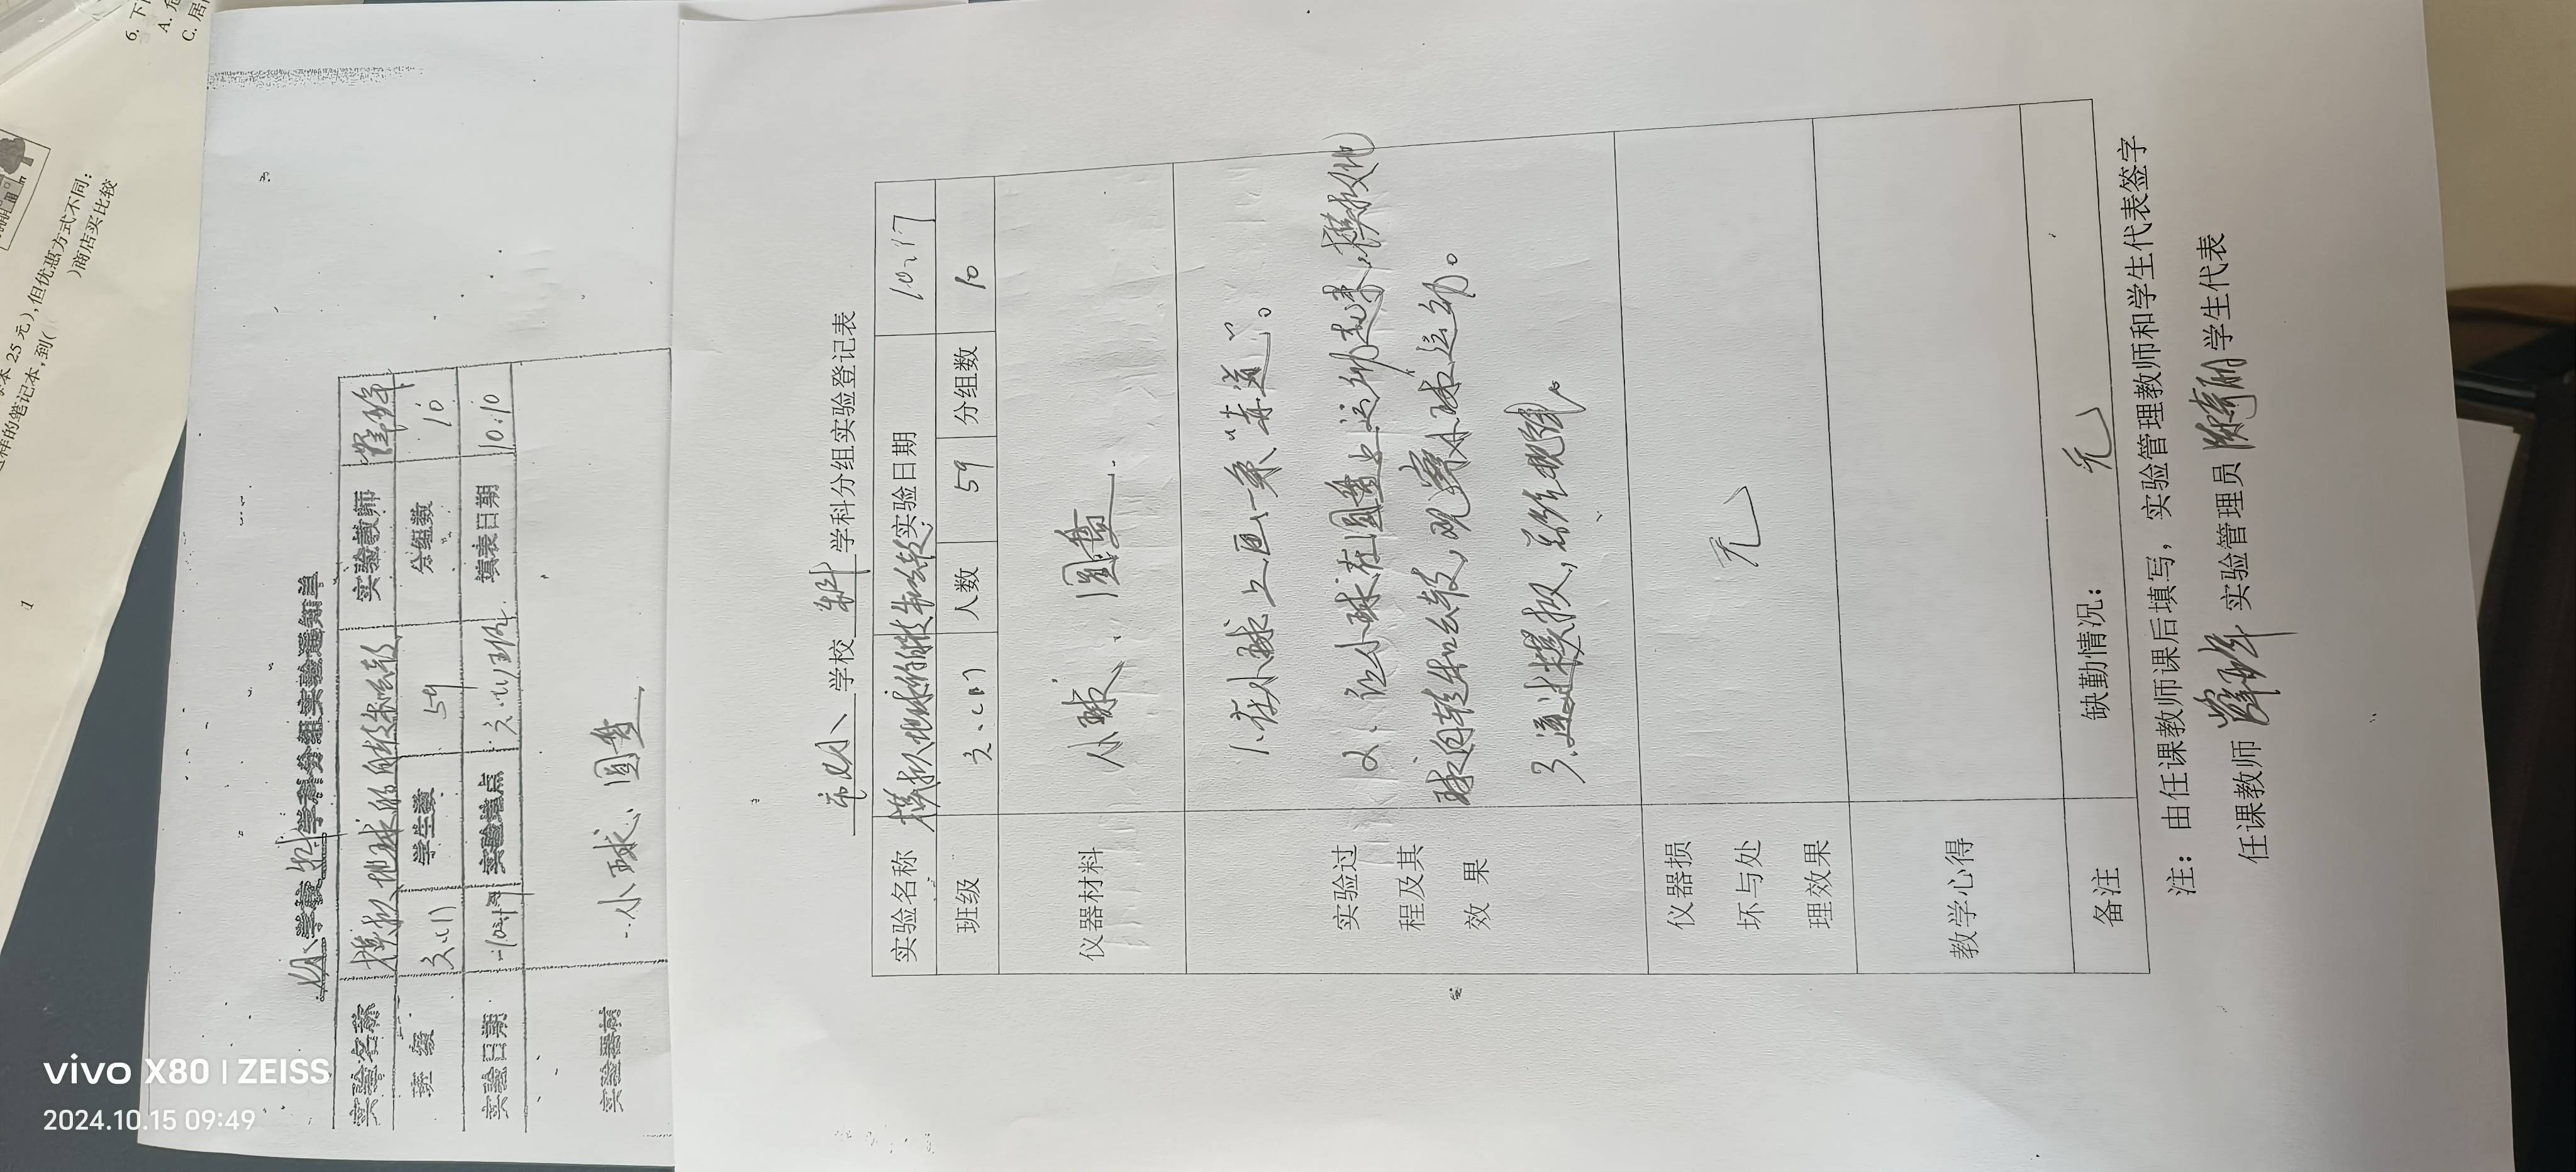 6. 下
A.
C. 居
25元),但优惠方式不同:
样的笔记本,到(
)商店买比较
学校 科 学科分组实验通知单
实验名称 模拟地球的自转和公转 实验教师
班 级 学生数 59 分组数 10
实验日期 实验地点 填表日期 10.10
实验器材 小球、圆盘
学校 科 学科分组实验登记表
实验名称 模拟地球的自转和公转 实验日期 10.17
班级 人数 59 分组数 10
仪器材料 小球、圆盘
实验过程及其效果
1.在小球上画一条“ 道”。
2.让小球在圆盘上运动起来,模拟地
球自转和公转,观察小球运动。
3.通过模拟,
仪器损坏与处理效果 无
教学心得
备注 缺勤情况: 无
注: 由任课教师课后填写, 实验管理教师和学生代表签字
任课教师 实验管理员 学生代表
vivo X80 | ZEISS
2024.10.15 09:49